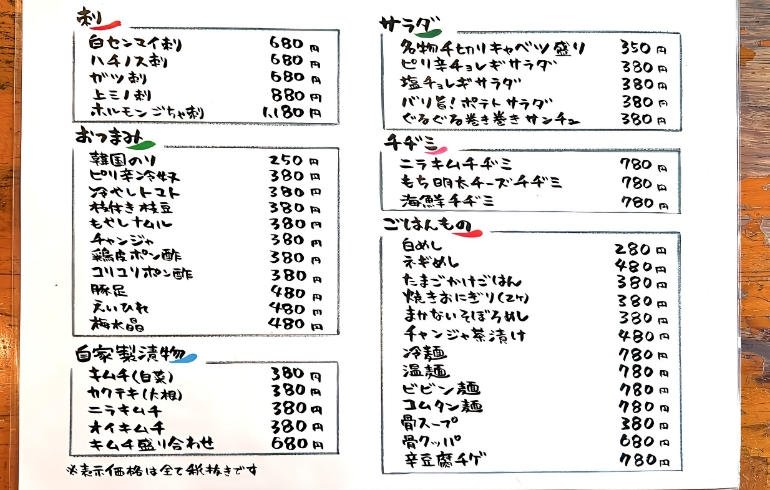 刺
白センマイ刺 680円
ハチノス刺 680円
ガツ刺 680円
上ミノ刺 880円
ホルモンごちゃ刺 1,180円
おつまみ
韓国のり 250円
ピリ辛冷奴 380円
冷やしトマト 380円
枝付き枝豆 380円
もやしナムル 380円
チャンジャ 380円
鶏皮ポン酢 380円
コリコリポン酢 380円
豚足 480円
えいひれ 480円
梅水晶 480円
自家製漬物
キムチ(白菜) 380円
カクテキ(大根) 380円
ニラキムチ 380円
オイキムチ 380円
キムチ盛り合わせ 680円
※表示価格は全て税抜きです
サラダ
名物チ切りキャベツ盛り 350円
ピリ辛チョレギサラダ 380円
塩チョレギサラダ 380円
バリ旨!ポテトサラダ 380円
ぐるぐる巻き巻きサンチュ 380円
チヂミ
ニラキムチヂミ 780円
もち明太チーズチヂミ 780円
海鮮チヂミ 780円
ごはんもの
白めし 280円
ネギめし 480円
たまごかけごはん 380円
焼きおにぎり(2ヶ) 380円
まかないそぼろめし 380円
チャンジャ茶漬け 480円
冷麺 780円
温麺 780円
ビビン麺 780円
コムタン麺 780円
骨スープ 380円
骨クッパ 680円
辛豆腐チゲ 780円